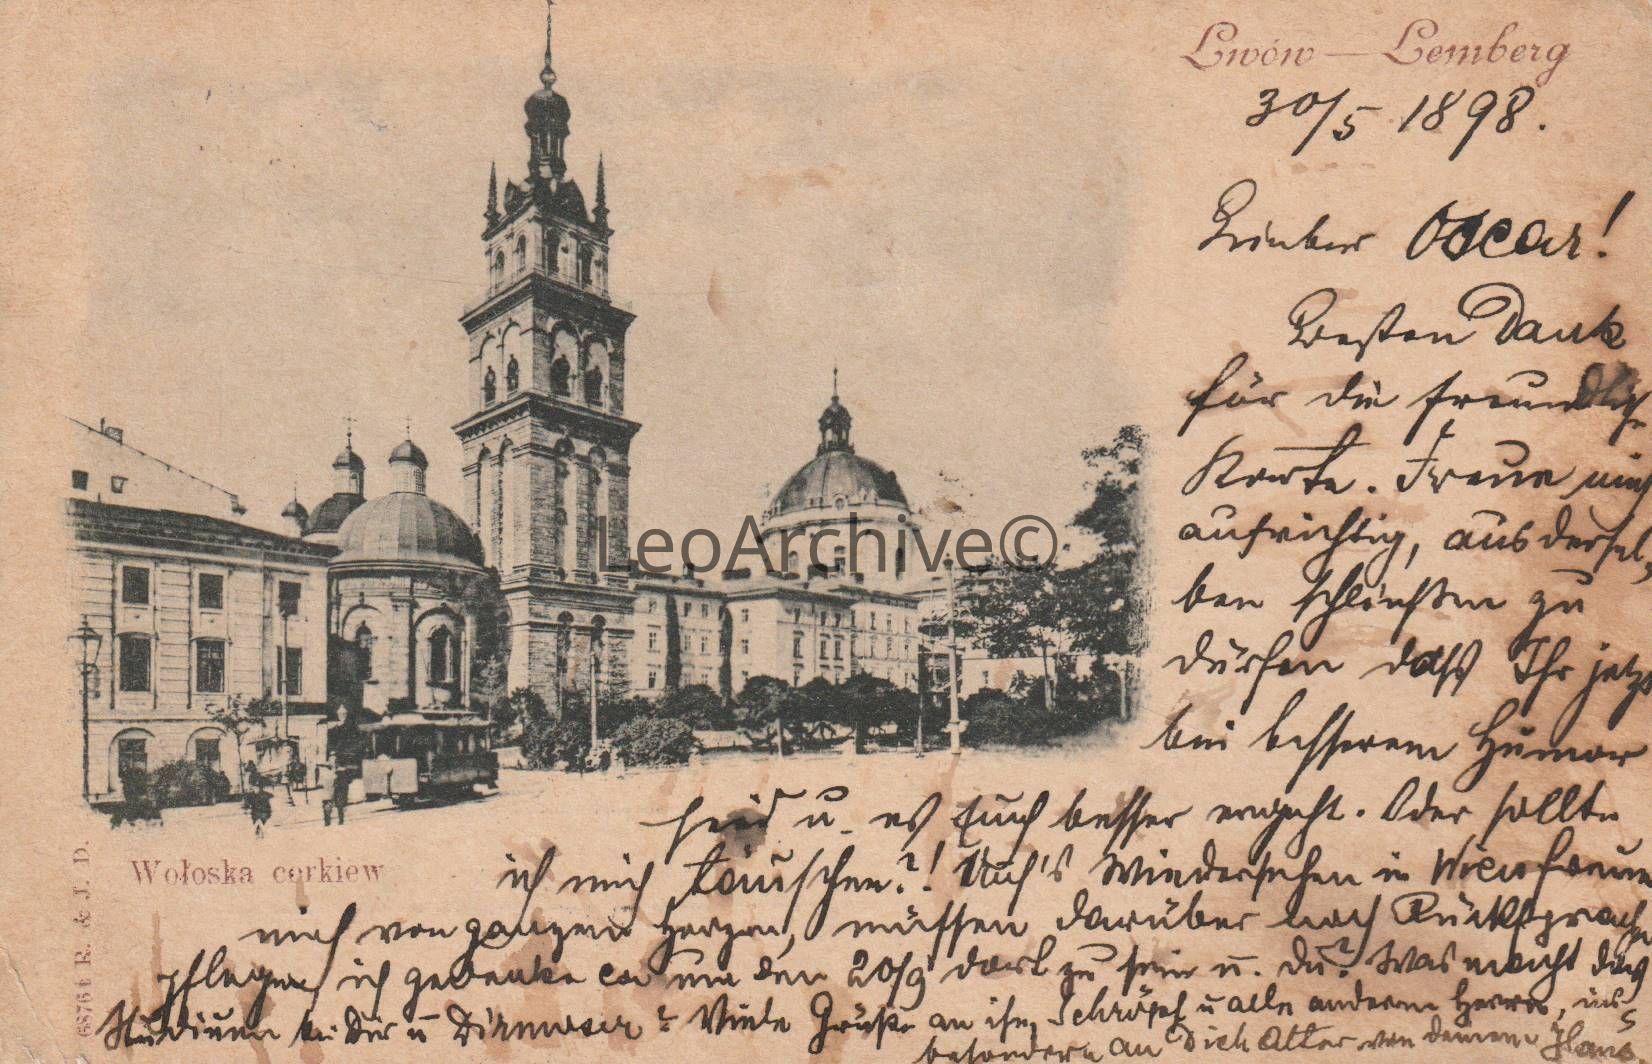 Lwów — Lemberg
30/5 1898.
Lieber Oscar!
Besten Dank
für die freundliche
Karte. Freue mich
aufrichtig, aus dersel-
ben schließen zu
dürfen daß Ihr jetzt
bei besserem Humor
seid u. es Euch besser ergeht. Oder sollte
ich mich täuschen?! Auch's Wiedersehen in Wien freue
mich von ganzem Herzen, müssen darüber noch Rücksprache
pflegen, ich gedenke ca um den 20/9 dort zu sein u. Du? Was macht das
Studium bei Dir u ? Viele Grüße an ihn, Schröpf u alle anderen Herren, ins-
besondere an Dich Alter von deinem Hans
Wołoska cerkiew
68761 R. & J. D.
LeoArchive©